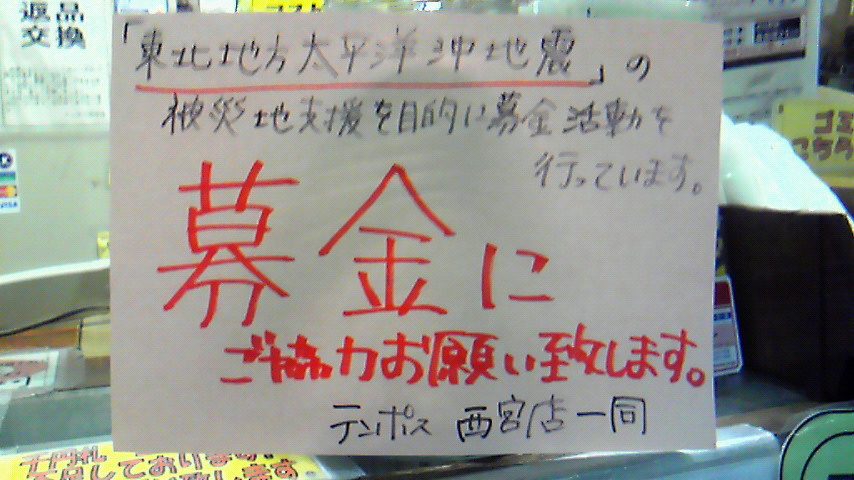 返品
交換
「東北地方太平洋沖地震」の
被災地支援を目的に募金活動を
行っています。
募金に
ご協力お願い致します。
テンポス 西宮店一同
ゴミ
こちら
VISA
千円札
不足しております。